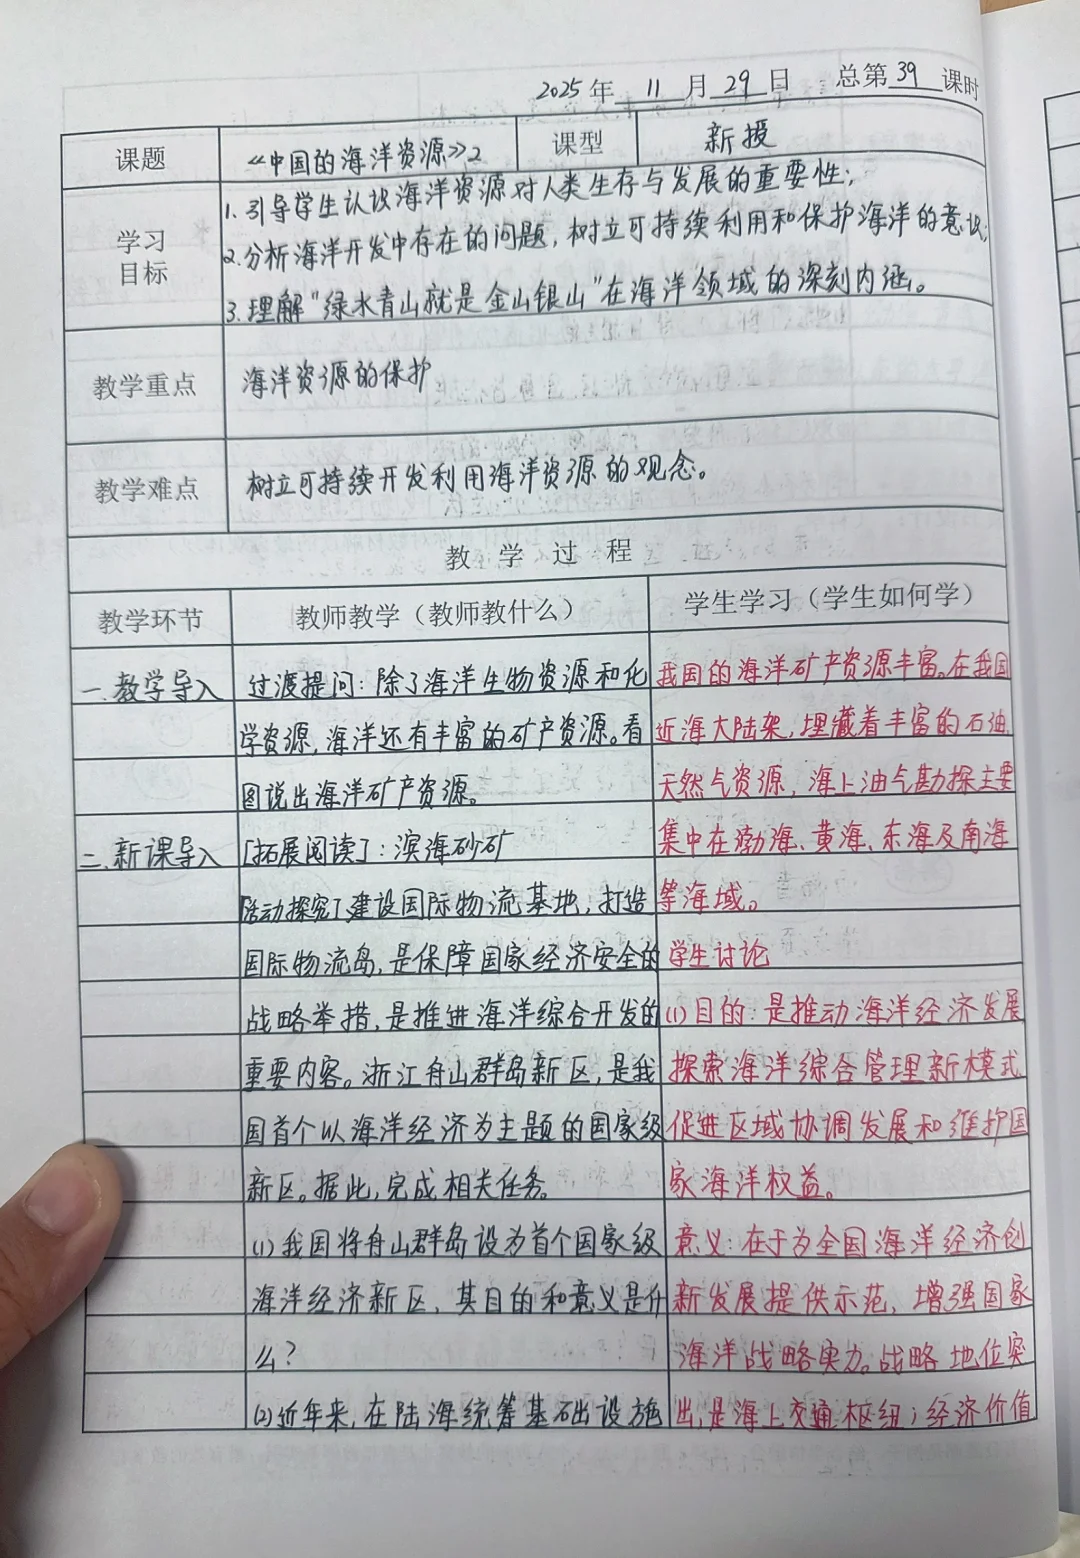 2025年 11 月 29 日 总第 39 课时
课题 《中国的海洋资源》2 课型 新授
学习目标
1.引导学生认识海洋资源对人类生存与发展的重要性;
2.分析海洋开发中存在的问题,树立可持续利用和保护海洋的意识;
3.理解"绿水青山就是金山银山"在海洋领域的深刻内涵。
教学重点 海洋资源的保护
教学难点 树立可持续开发利用海洋资源的观念。
教 学 过 程
教学环节 教师教学(教师教什么) 学生学习(学生如何学)
一.教学导入 过渡提问:除了海洋生物资源和化 我国的海洋矿产资源丰富。在我国
学资源,海洋还有丰富的矿产资源。看 近海大陆架,埋藏着丰富的石油、
图说出海洋矿产资源。 天然气资源,海上油气勘探主要
二.新课导入 [拓展阅读]:滨海砂矿 集中在渤海、黄海、东海及南海
活动探究]建设国际物流基地,打造 等海域。
国际物流岛,是保障国家经济安全的 学生讨论
战略举措,是推进海洋综合开发的 (1)目的:是推动海洋经济发展
重要内容。浙江舟山群岛新区,是我 探索海洋综合管理新模式
国首个以海洋经济为主题的国家级 促进区域协调发展和维护国
新区。据此,完成相关任务。 家海洋权益。
(1)我国将舟山群岛设为首个国家级 意义:在于为全国海洋经济创
海洋经济新区,其目的和意义是什 新发展提供示范,增强国家
么? 海洋战略实力。战略地位突
(2)近年来,在陆海统筹基础设施 出,是海上交通枢纽;经济价值